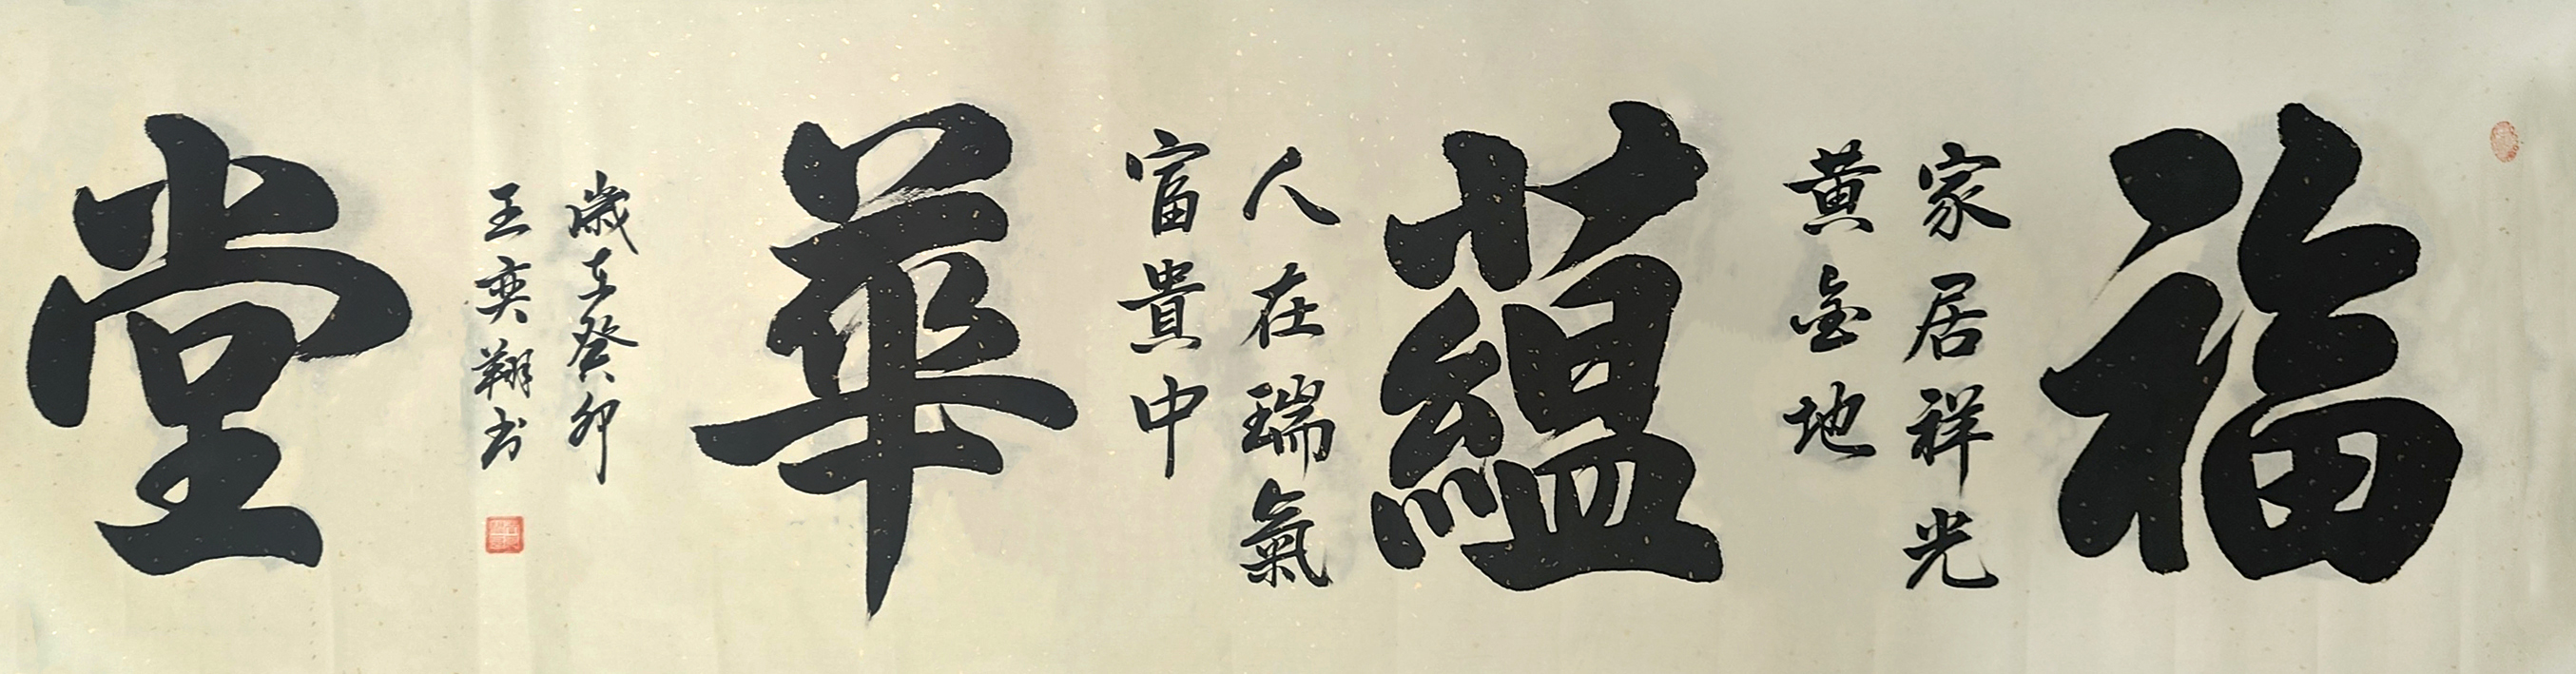 福
家居祥光
黄金地
蘊
人在瑞氣
富貴中
華
歲在癸卯
王奕翔书
堂